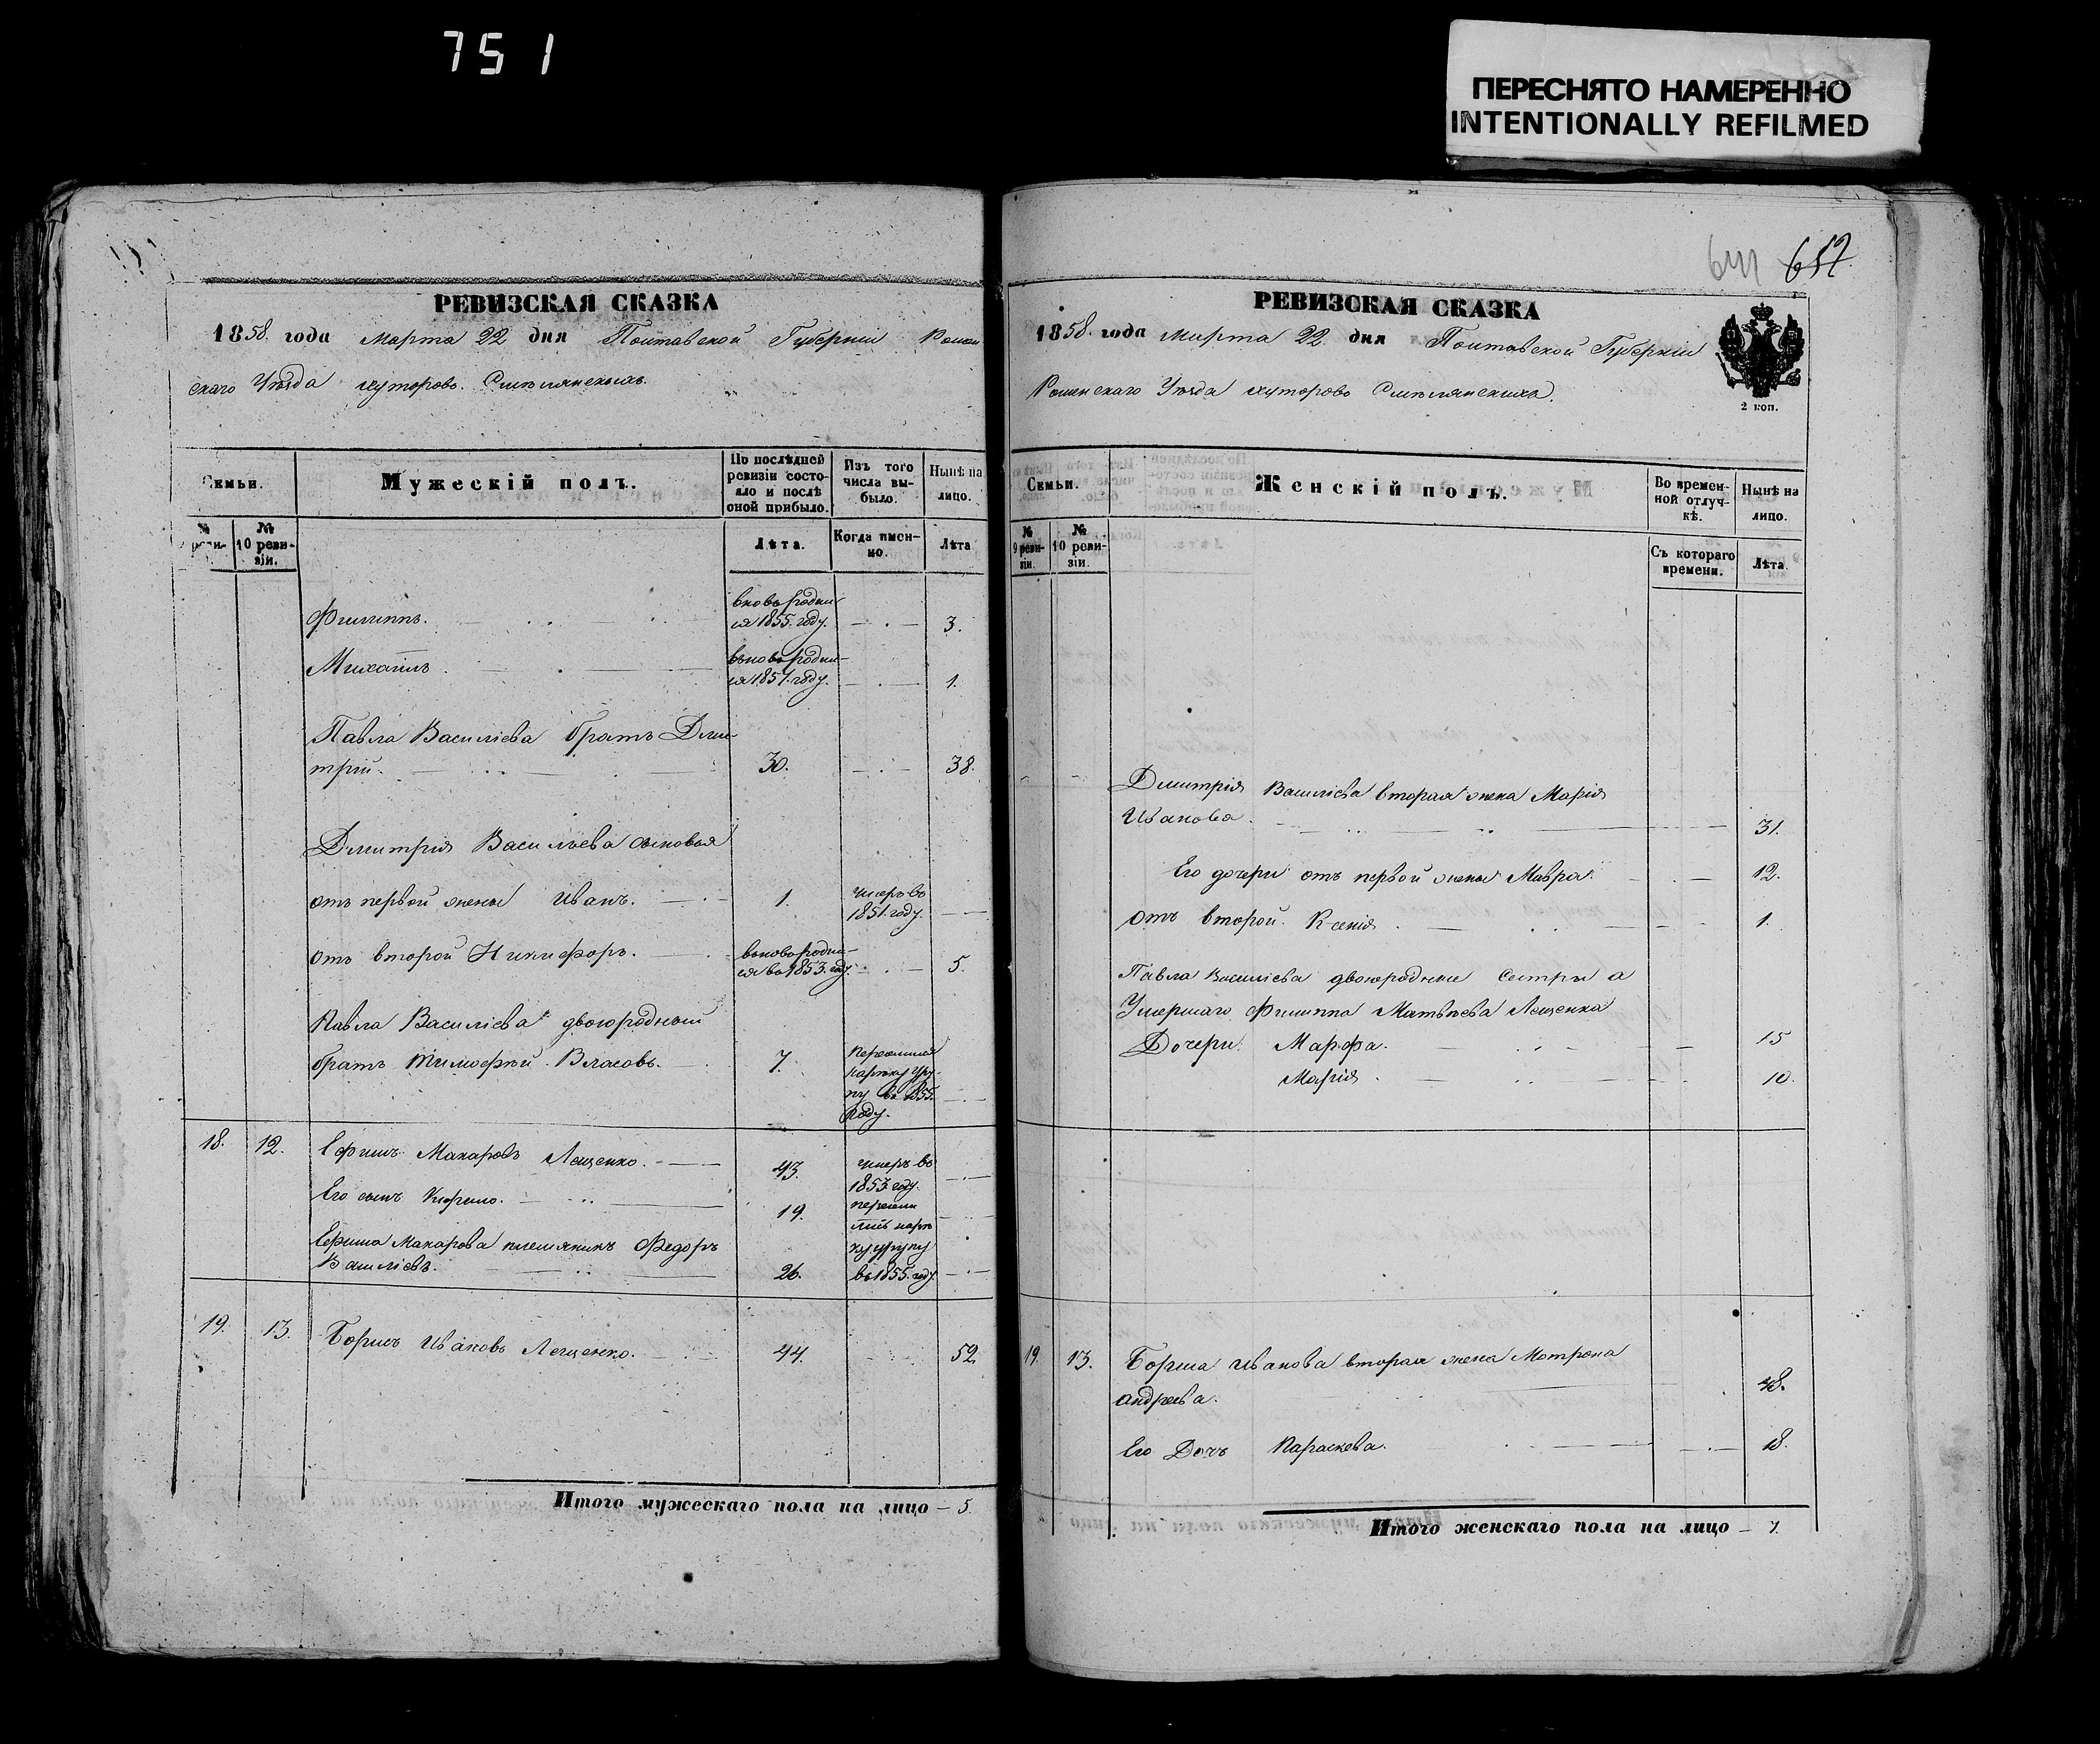 751
ПЕРЕСНЯТО НАМЕРЕННО
INTENTIONALLY REFILMED
РЕВИЗСКАЯ СКАЗКА
1858. года Марта 22 дня Полтавской Губерніи Ромен
скаго Уѣзда хуторовъ. Смѣлянскихъ.
Семьи.
Мужескій полъ.
По послѣдней
ревизіи состо-
яло и послѣ
оной прибыло.
Изъ того
числа вы-
было.
Нынѣ на
лицо.
№
№
10 реви-
зіи.
Лѣта.
Когда имен-
но.
Лѣта
Филиппъ.
вновь родил
ся 1855. году.
3.
Михаилъ.
вьновь родил-
ся 1857. году.
1.
Павла Василіева братъ Дми-
трій.
30.
38.
Дмитрія Васильева сыновья
отъ первой жены Иванъ.
1.
Умеръ въ
1851. году.
отъ второй Никифоръ.
вьновь родил-
ся въ 1853. году.
5.
Павла Василіева двоюродный
братъ Тимофѣй Власовъ.
7.
въ 1855.
году.
18. 12. Ефимъ Макаровъ Лещенко.
43.
Умеръ въ
1853 году.
Его сынъ Кирило.
19.
Ефима Макарова племянникъ Федоръ
Василіевъ.
26.
въ 1855. году.
19. 13. Борисъ Ивановъ Лещенко.
44.
52.
Итого мужескаго пола на лицо – 5.
641 657.
РЕВИЗСКАЯ СКАЗКА
1858. года Марта 22 дня Полтавской Губерніи
Роменскаго Уѣзда хуторовъ Смѣлянскихъ.
2 коп.
Семьи.
Женскій полъ.
Во времен-
ной отлуч-
кѣ.
Нынѣ на
лицо.
№
9 реви-
зіи.
№
10 реви-
зіи.
Съ котораго
времени.
Лѣта.
Дмитрія Василіева вторая жена Марія
Иванова.
31.
Его дочери отъ первой жены Мавра.
12.
отъ второй. Ксенія.
1.
Павла Василіева двоюродные сестры а
Умершаго Филиппа Матвѣева Лещенка
Дочери. Марфа.
15
Марія.
10.
19. 13. Бориса Иванова вторая жена Мотрона
Андреева.
48.
Его Дочь Параскева.
18.
Итого женскаго пола на лицо – 7.